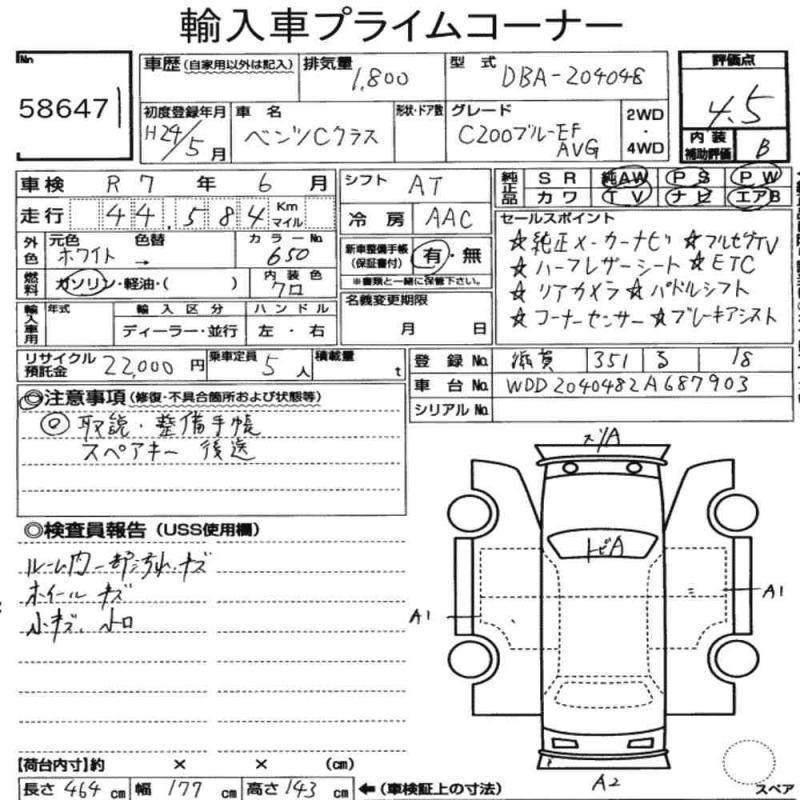 輸入車プライムコーナー
No 58647
車歴(自家用以外は記入) 排気量 1,800 型式 DBA-204048 評価点 4.5
初度登録年月 H24/5月 車名 ベンツCクラス 形状・ドア数 グレード C200ブルーEF AVG 2WD・4WD 内装補助評価 B
車検 R7年6月 シフト AT 純正品 SR 純AW PS PW
カワ TV ナビ エアB
走行 44,584 Km マイル 冷房 AAC
セールスポイント
外色 元色 ホワイト 色替 → カラーNo. 650 新車整備手帳(保証書付) 有・無
※書類と一緒に保管下さい。
☆純正メーカーナビ ☆フルセグTV
☆ハーフレザーシート ☆ETC
☆リアカメラ ☆パドルシフト
☆コーナーセンサー ☆ブレーキアシスト
燃料 ガソリン・軽油・( ) 内装色 クロ
名義変更期限 月 日
輸入車用 年式 輸入区分 ハンドル
ディーラー・並行 左・右
リサイクル預託金 22,000円 乗車定員 5人 積載量 t
登録No. 滋賀 351 る 18
車台No. WDD2040482A687903
シリアルNo.
◎注意事項(修復・不具合箇所および状態等)
◎取説・整備手帳
スペアキー 後送
◎検査員報告(USS使用欄)
ルーム内一部汚れ、キズ
ホイール キズ
小キズ、小凹
スリA
トビA
A1
A1
A2
スペア
【荷台内寸】約 × × (cm)
長さ 464cm 幅 177cm 高さ 143cm ←(車検証上の寸法)